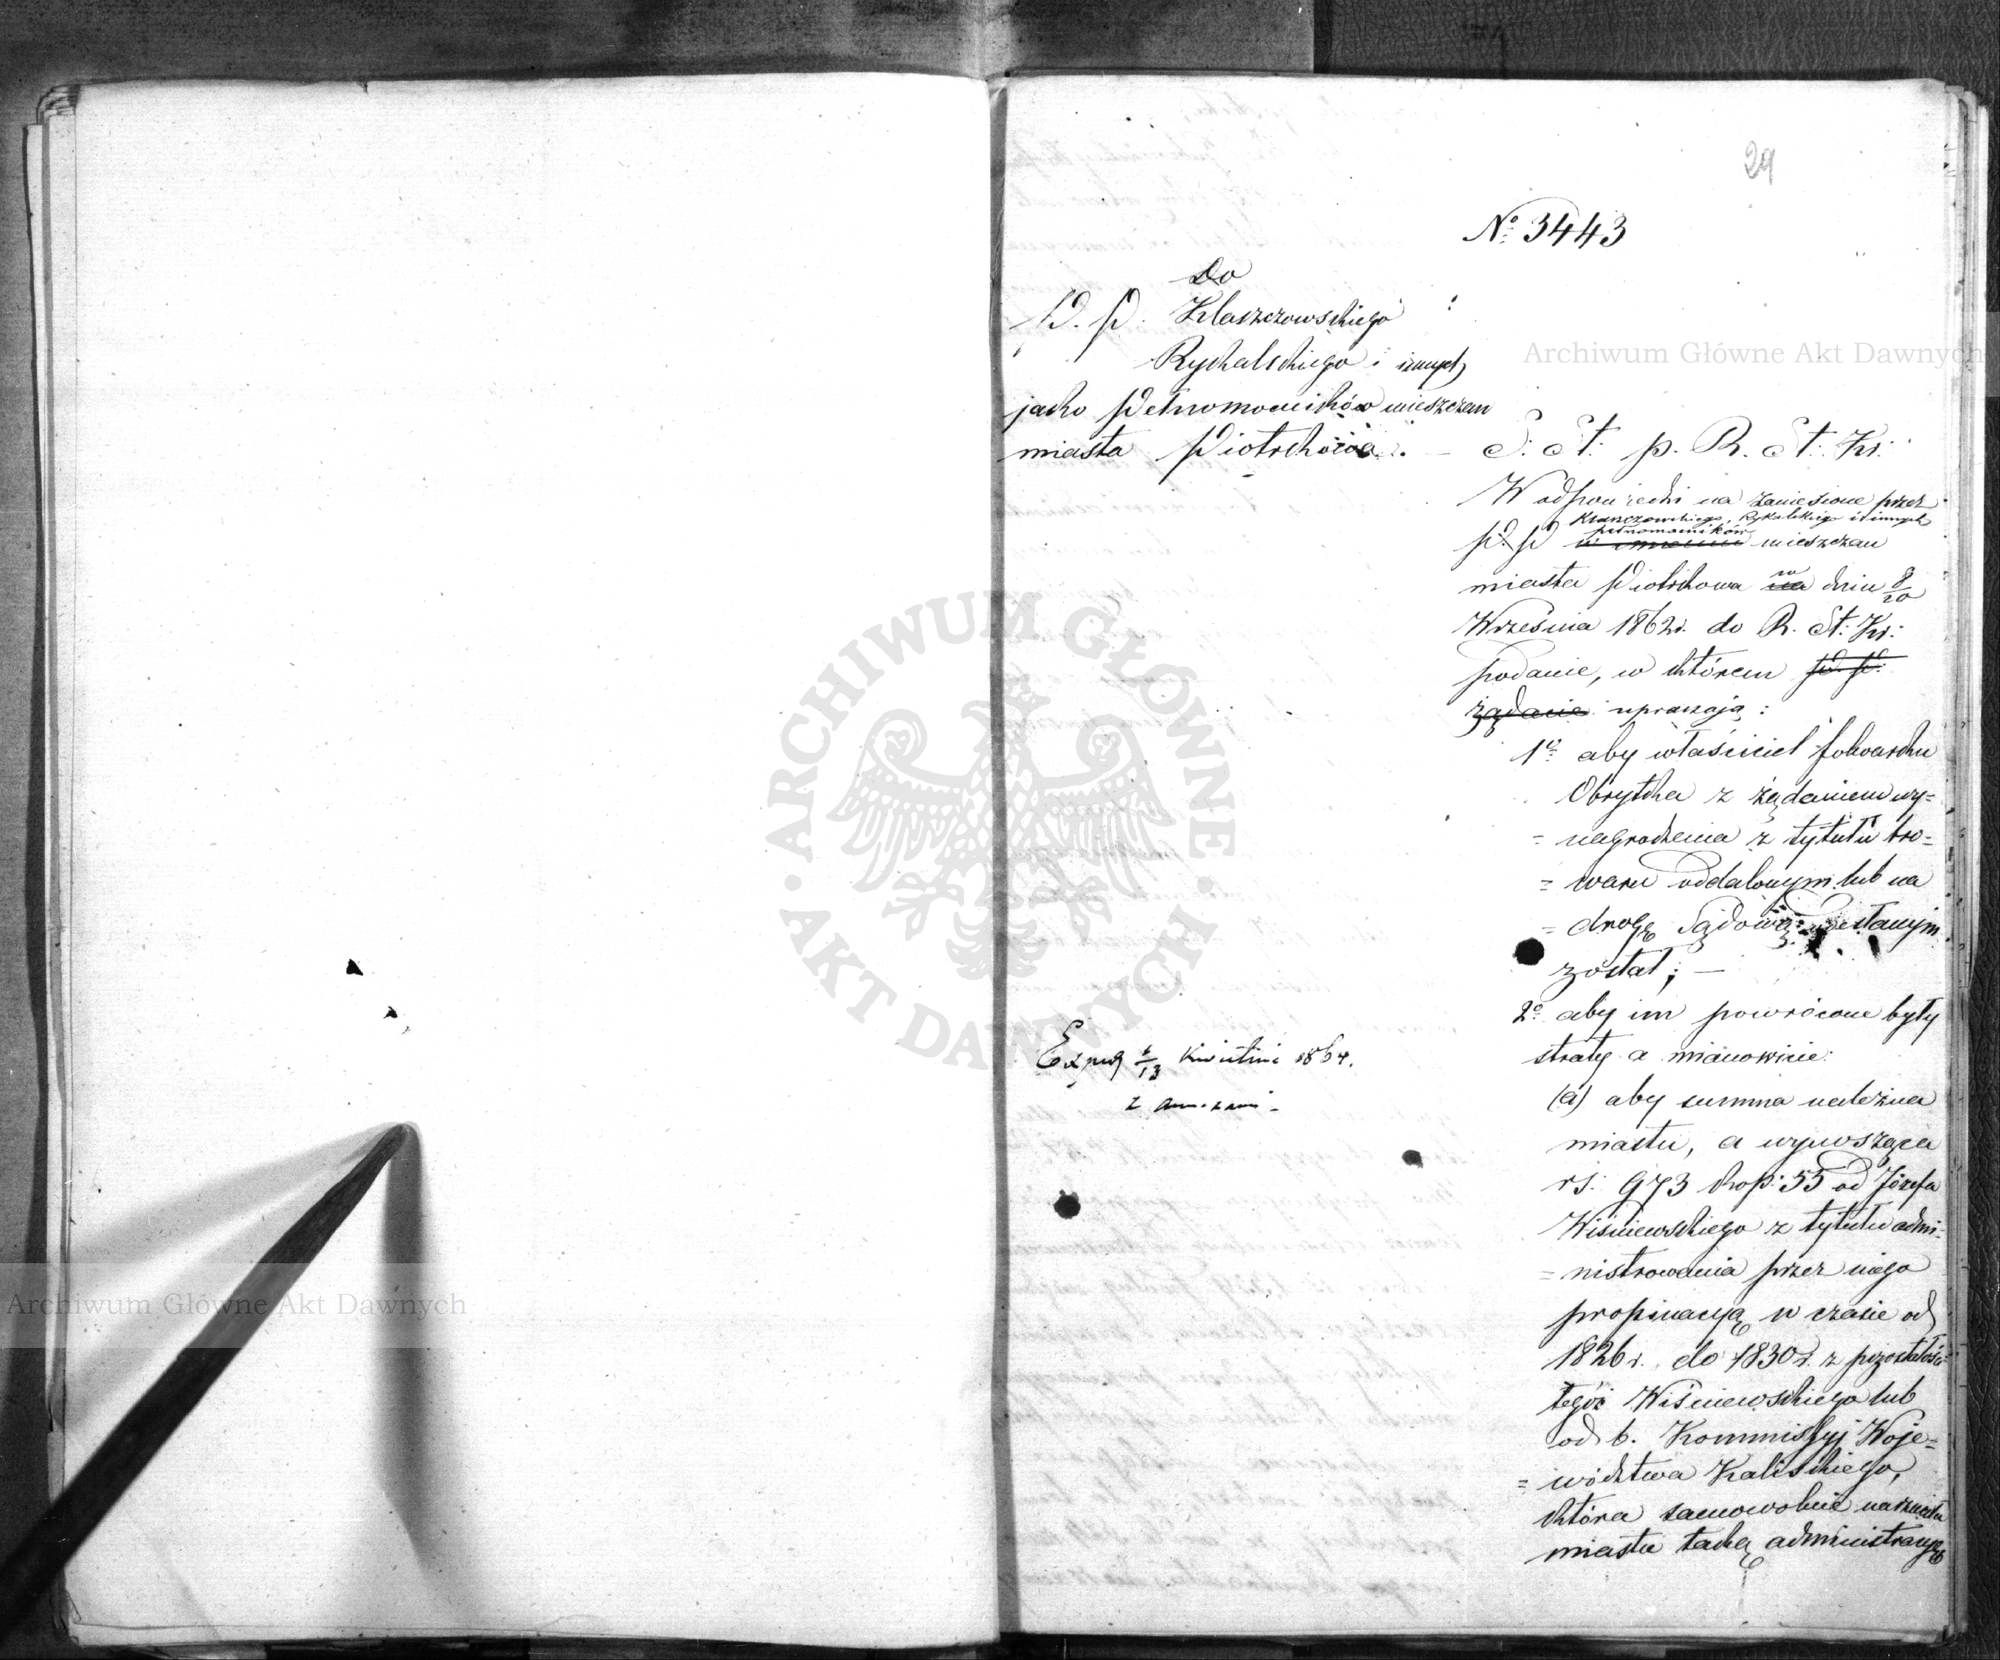 29
Nº 3443
Do
W. P. Klaszczowskiego
Rychalskiego i innych
jako Pełnomocników mieszczan
miasta Piotrkowa. —
S. St. p. R. St. Kr.
W odpowiedzi na zaniesione przez
Klaszczowskiego, Rykalskiego i innych
pełnomocników
P. P. w imieniu mieszczan
w
miasta Piotrkowa na dniu 8/20
Września 1862 r. do R. St. Kr.
podanie, w którem P. P.
żądacie upraszają:
1º aby właściciel folwarku
Obrytka z żądaniem wy=
=nagrodzenia z tytułu bro=
=waru oddalonym lub na
=drogę Sądową odesłanym
został; —
2º aby im powrócone były
straty a mianowicie:
(a) aby summa należna
miastu, a wynosząca
rs. 973 kop. 55 od Józefa
Wiśniewskiego z tytułu admi=
=nistrowania przez niego
propinacyą w czasie od
1826 r. do 1830 r. z pozostałości
tegoż Wiśniewskiego lub
od b. Kommissyj Woje=
=wództwa Kaliskiego,
która samowolnie narzuciła
miastu taką administracyę
Exped 1/13 Kwietnia 1864.
z annexami.
ARCHIWUM GŁÓWNE
AKT DAWNYCH
Archiwum Główne Akt Dawnych
Archiwum Główne Akt Dawnych